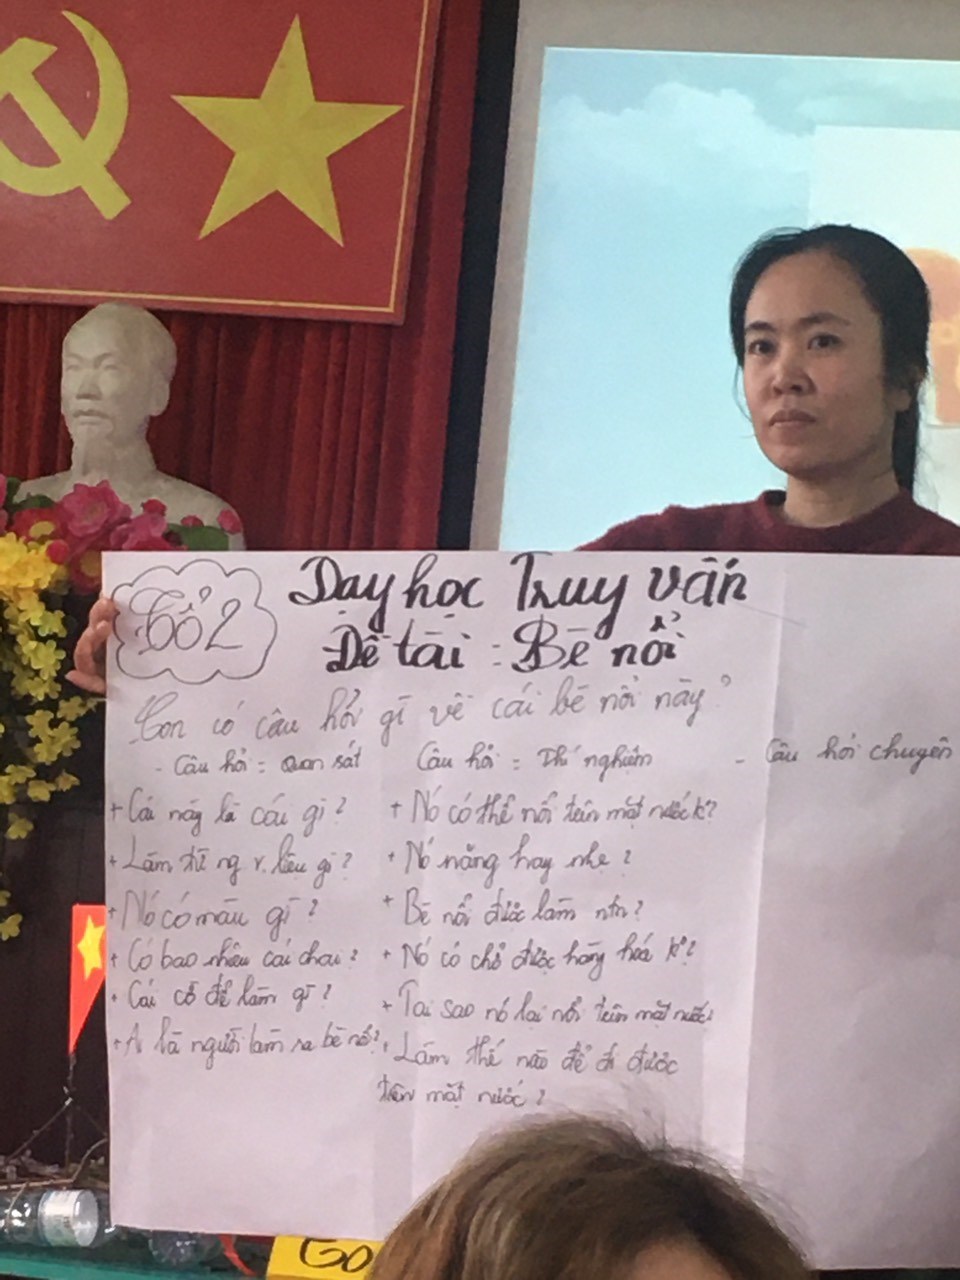 Tổ 2
Dạy học Truy vấn
Đề tài : Bè nổi
Con có câu hỏi gì về cái bè nổi này?
- Câu hỏi : Quan sát
+ Cái này là cái gì?
+ Làm từ ng. v. liệu gì?
+ Nó có màu gì?
+ Có bao nhiêu cái chai?
+ Cái cờ để làm gì?
+ Ai là người làm ra bè nổi?
Câu hỏi : Thí nghiệm
+ Nó có thể nổi trên mặt nước k?
+ Nó nặng hay nhẹ?
+ Bè nổi được làm ntn?
+ Nó có chở được hàng hoá k?
+ Tại sao nó lại nổi trên mặt nước?
+ Làm thế nào để đi được
trên mặt nước?
- Câu hỏi chuyên